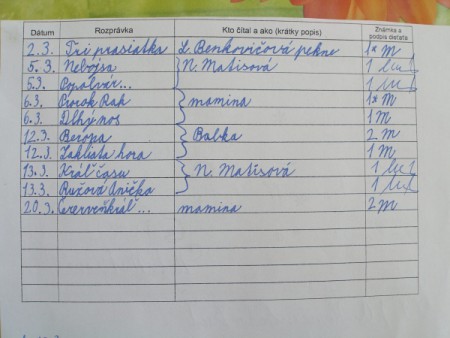 Dátum Rozprávka Kto čítal a ako (krátky popis) Známka a podpis dieťaťa
2.3. Tri prasiatka L. Benkovičová pekne 1* M
5.3. Nebojsa N. Matisová 1
5.3. Popolvár... 1
6.3. Prorok Rak mamina 1* M
6.3. Dlhý nos 1 M
12.3. Babka 2 M
12.3. Zakliata hora 1 M
13.3. Kráľ času N. Matisová 1
13.3. Ružová Anička 1
20.3. Červenkráľ... mamina 2 M